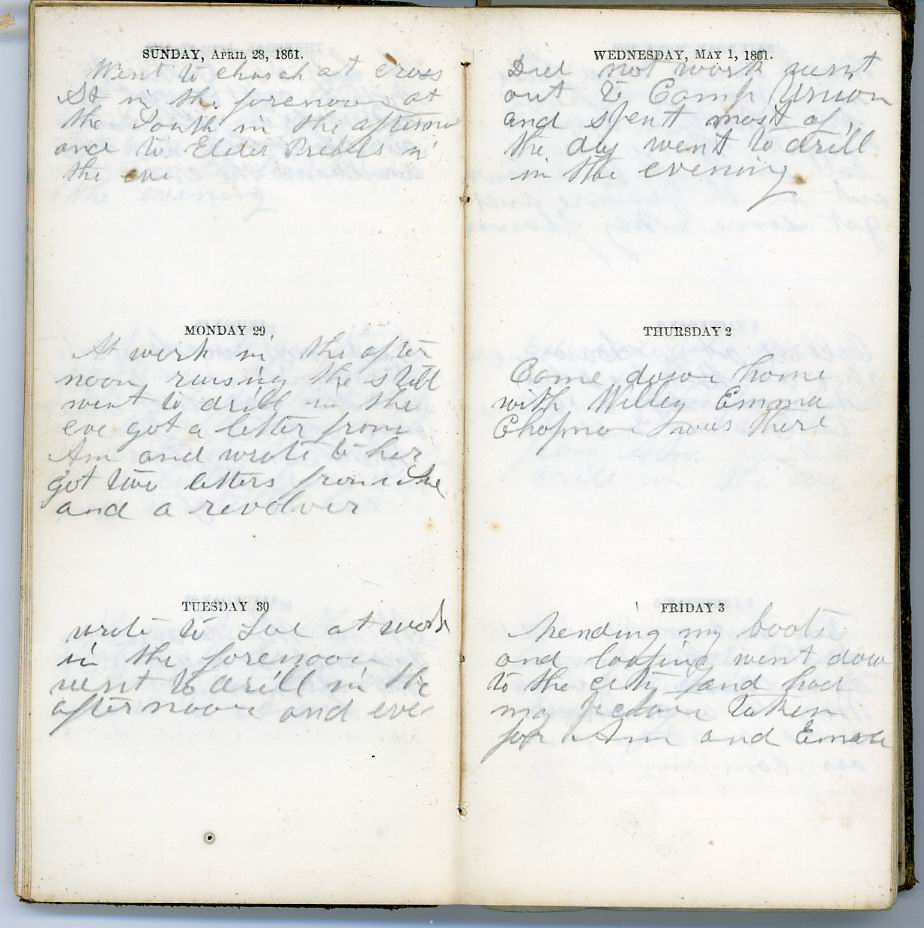 SUNDAY, APRIL 28, 1861.
Went to church at Cross
St in the forenoon at
the South in the afternoon
and to Elder Prebles in
the eve
MONDAY 29
At work in the after
noon rursing the still
went to drill in the
eve got a letter from
Am and wrote to her
got two letters from
and a revolver
TUESDAY 30
wrote to at work
in the forenoon
went to drill in the
afternoon and eve
WEDNESDAY, MAY 1, 1861.
Did not work went
out to Camp Union
and spent most of
the day went to drill
in the evening
THURSDAY 2
Come down home
with Willey Emma
Chapman was there
FRIDAY 3
Mending my boots
and loafing went down
to the city and had
my picture taken
for Am and Emma